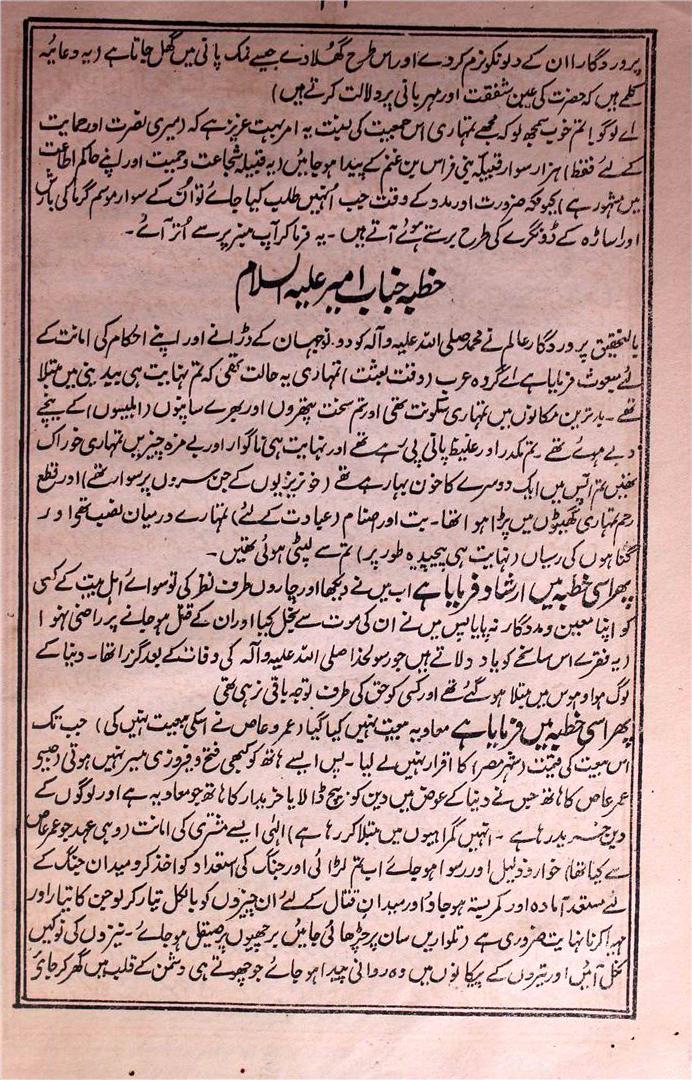 پروردگارا ان کے دلونکو نرم کردے اور اس طرح گھلا دے جیسے نمک پانی میں گھل جاتا ہے (یہ دعائیہ
کلمے ہیں کہ حضرت کی عین شفقت اور مہربانی پر دلالت کرتے ہیں)
اے لوگو! تم خوب سمجھ لو کہ مجھے تمہاری اس جمعیت کی نسبت یہ امر بہت عزیز ہے کہ (میری نصرت اور حمایت
کے لئے فقط) ہزار سوار قبیلۂ بنی فراس بن غنم کے پیدا ہو جائیں (یہ قبیلہ شجاعت و حمیت اور اپنے حاکم اطاعت
میں مشہور ہے) کیونکہ ضرورت اور مدد کے وقت جب اُنہیں طلب کیا جائے تو اُن کے سوار موسم گرما کی بارش
اور اساڑہ کے ڈونگرے کی طرح برستے ہوئے آتے ہیں ۔ یہ فرما کر آپ منبر پر سے اُتر آئے۔
خطبہ جناب امیر علیہ السلام
بالتحقیق پروردگار عالم نے محمد صلی اللہ علیہ و آلہ کو دو نوجہان کے ڈرانے اور اپنے احکام کی امانت کے
لئے مبعوث فرمایا ہے اے گروہ عرب (وقت بعثت) تمہاری یہ حالت تھی کہ تم نہایت ہی بیدینی میں مبتلا
تھے ۔ بدترین مکانوں میں تمہاری سکونت تھی اور تم سخت پتھروں اور بہرے سانپوں (ابلیسوں) کے نیچے
دبے ہوئے تھے ۔ تم مکدر اور غلیظ پانی پی رہے تھے اور نہایت ہی ناگوار اور بے مزہ چیزیں تمہاری خوراک
تھیں تم آپس میں ایک دوسرے کا خون بہا رہے تھے (خونریزیوں کے جن سروں پر سوار تھے) اور قطع
رحم تمہاری گھٹیوں میں پڑا ہوا تھا ۔ بت اور اصنام (عبادت کے لئے) تمہارے درمیان نصب تھی اور
گناہوں کی رسیاں (نہایت ہی پیچیدہ طور پر) تم سے لپٹی ہوئی تھیں ۔
پھر اسی خطبہ میں ارشاد فرمایا ہے اب میں نے دیکھا اور چاروں طرف نظر کی تو سوائے اہل بیت کے کسی
کو اپنا معین و مددگار نہ پایا پس میں نے ان کی موت سے بخل کیا اور ان کے قتل ہو جانے پر راضی نہوا
(یہ فقرے اس سانحے کو یاد دلاتے ہیں جو رسولخدا صلی اللہ علیہ و آلہ کی وفات کے بعد گزرا تھا۔ دنیا کے
لوگ ہوا و ہوس میں مبتلا ہو گئے تھے اور کسی کو حق کی طرف توجہ باقی نرہی تھی
پھر اسی خطبہ میں فرمایا ہے معاویہ بیعت نہیں کیا گیا (عمرو عاص نے اسکی بیعت نہیں کی) جب تک
اس بیعت کی قیمت (شہر مصر) کا اقرار نہیں لے لیا ۔ پس ایسے ہاتھ کو کبھی فتح و فیروزی میسر نہیں ہوتی (جیسے
عمر عاص کا ہاتھ جس نے دنیا کے عوض میں دین کو بیچ ڈالا یا خریدار کا ہاتھ جو معاویہ ہے اور لوگوں کے
دین خرید رہا ہے ۔ انہیں گمراہیوں میں مبتلا کر رہا ہے) الٰہی ایسے مشتری کی امانت (وہی عہد جو عمر عاص
سے کیا تھا) خوار و ذلیل اور رسوا ہو جائے اب تم لڑائی اور جنگ کی استعداد کو اخذ کرو میدان جنگ کے
لئے مستعد آمادہ اور کمربستہ ہو جاؤ اور میدان قتال کے لئے اُن چیزوں کو بالکل تیار کر لو جن کا تیار اور
مہیا کرنا نہایت ضروری ہے (تلواریں سان پر چڑھائی جائیں برچھیوں پر صیقل ہو جائے ۔ نیزوں کی نوکیں
نکل آئیں اور تیروں کے پیکانوں میں وہ روانی پیدا ہو جائے جو چھوٹتے ہی دشمن کے قلب میں گھر کر جائے